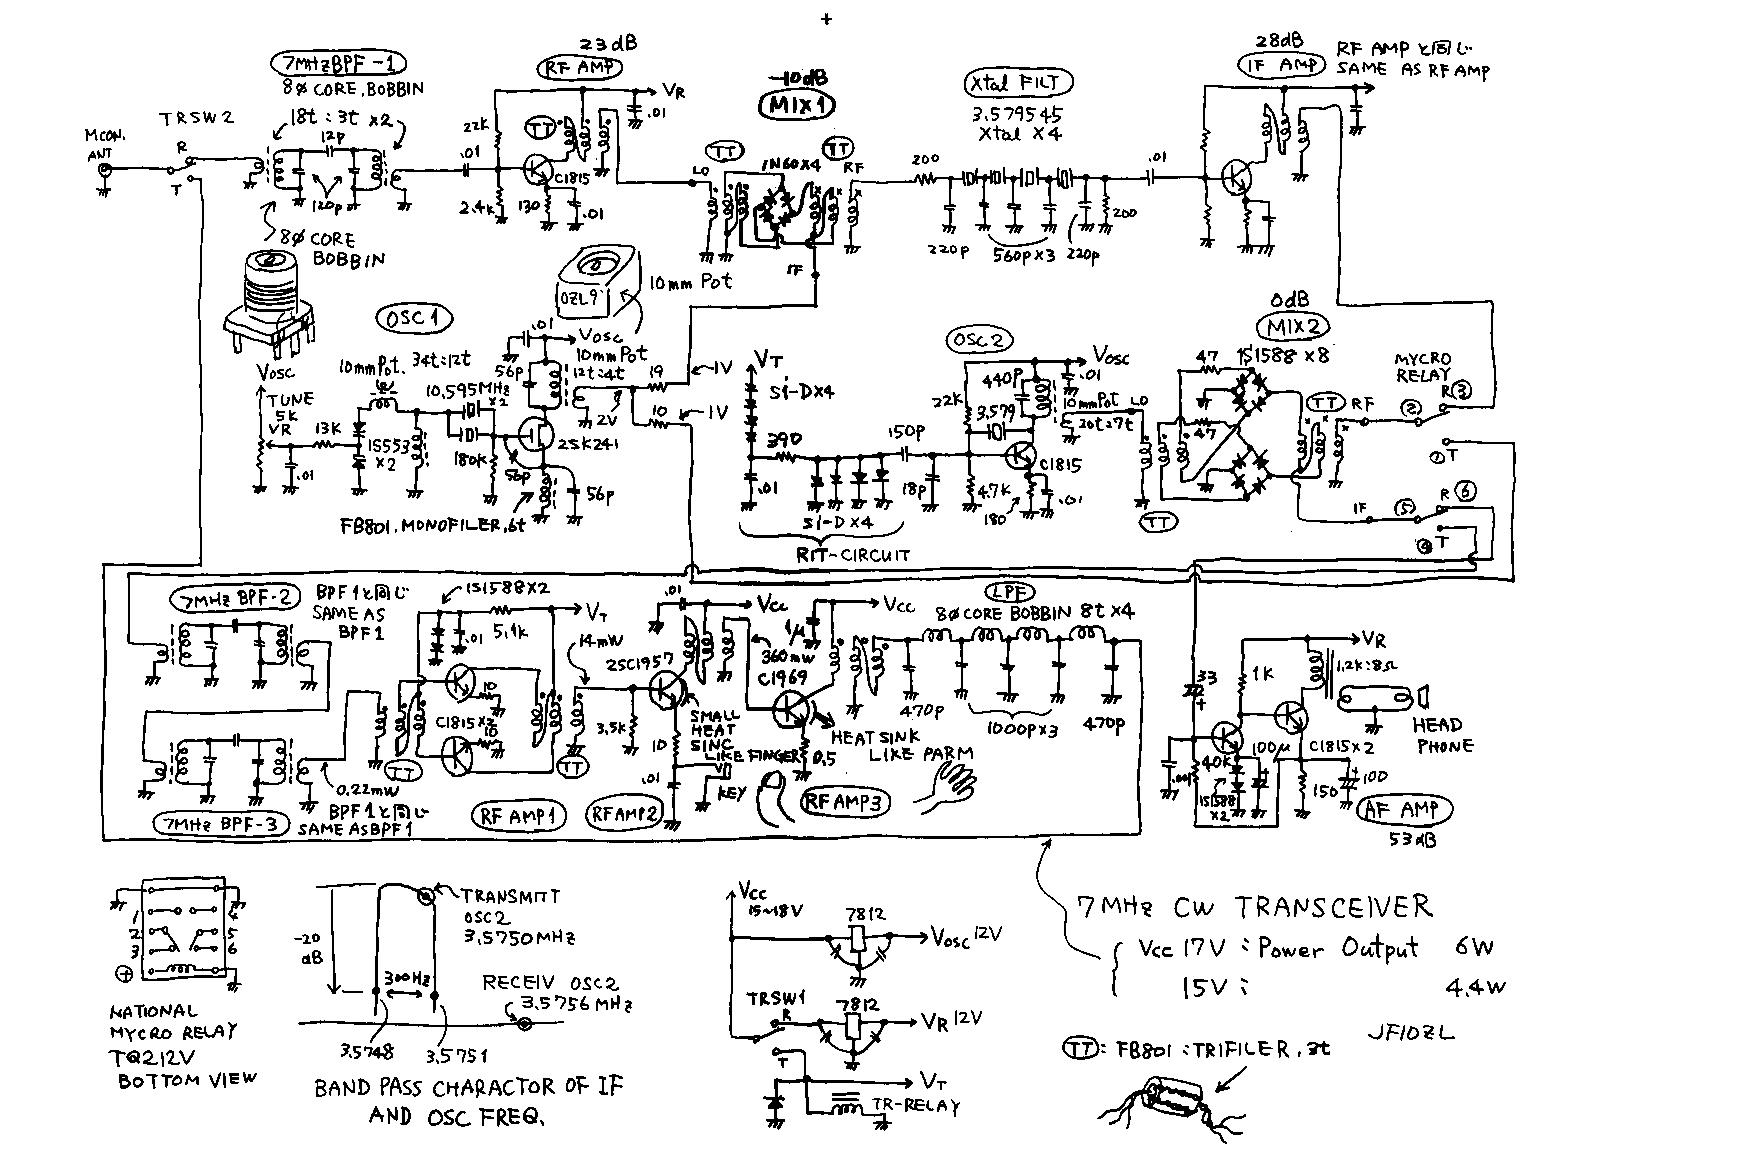 23dB
7MHz BPF-1
RF AMP
8ø CORE, BOBBIN
18t : 3t x2
12p
120p
TRSW2
MCON.
ANT
R
T
22K
.01
2.4K
130
C1815
.01
TT
VR
.01
8ø CORE
BOBBIN
-10dB
MIX1
TT
1N60X4
TT
LO
RF
IF
Xtal FILT
3.579545
Xtal X4
200
220p
560p X3
220p
200
.01
28dB
IF AMP
RF AMPと同じ
SAME AS RF AMP
OZL9
10mm Pot
OSC1
10mmPot. 34t:12t
10,595MHz
X2
VOSC
TUNE
5K
VR
13K
.01
1S553
X2
180K
56p
2SK241
56p
.01
VOSC
10mmPot
12t:4t
56p
2V
19
10
1V
1V
FB801. MONOFILER, 6t
VT
Si-DX4
390
.01
150p
18p
Si-D X4
RIT-CIRCUIT
OSC2
VOSC
440p
.01
22K
3,579
10mmPot
20t:7t
LO
C1815
4.7K
180
.01
0dB
MIX2
47
1S1588 X8
47
TT
RF
TT
MYCRO
RELAY
R③
②
①T
IF
⑤
R⑥
④T
7MHz BPF-2
BPF1と同じ
SAME AS
BPF1
7MHz BPF-3
0.22mW
BPF1と同じ
SAME AS BPF1
1S1588X2
.01
5.1K
VT
14mW
10
C1815 X2
10
TT
TT
RF AMP1
.01
Vcc
2SC1957
3.5K
10
.01
KEY
SMALL
HEAT
SINC
LIKE FINGER
RFAMP2
360mW
C1969
1μ
Vcc
0.5
HEAT SINK
LIKE PARM
RF AMP3
LPF
8ø CORE BOBBIN 8t X4
470p
1000pX3
470p
VR
33
1K
1.2K:8Ω
HEAD
PHONE
.001
40K
100μ
C1815X2
1S1588
X2
150
100
AF AMP
53dB
1
2
3
4
5
6
+
NATIONAL
MYCRO RELAY
TQ212V
BOTTOM VIEW
-20
dB
300Hz
TRANSMITT
OSC2
3,5750MHz
RECEIV OSC2
3.5756MHz
3.5748
3,5751
BAND PASS CHARACTOR OF IF
AND OSC FREQ.
Vcc
15~18V
7812
VOSC 12V
TRSW1
R
T
7812
VR 12V
VT
TR-RELAY
7MHz CW TRANSCEIVER
Vcc 17V : Power Output 6W
15V : 4.4W
JF1OZL
TT : FB801 : TRIFILER, 3t